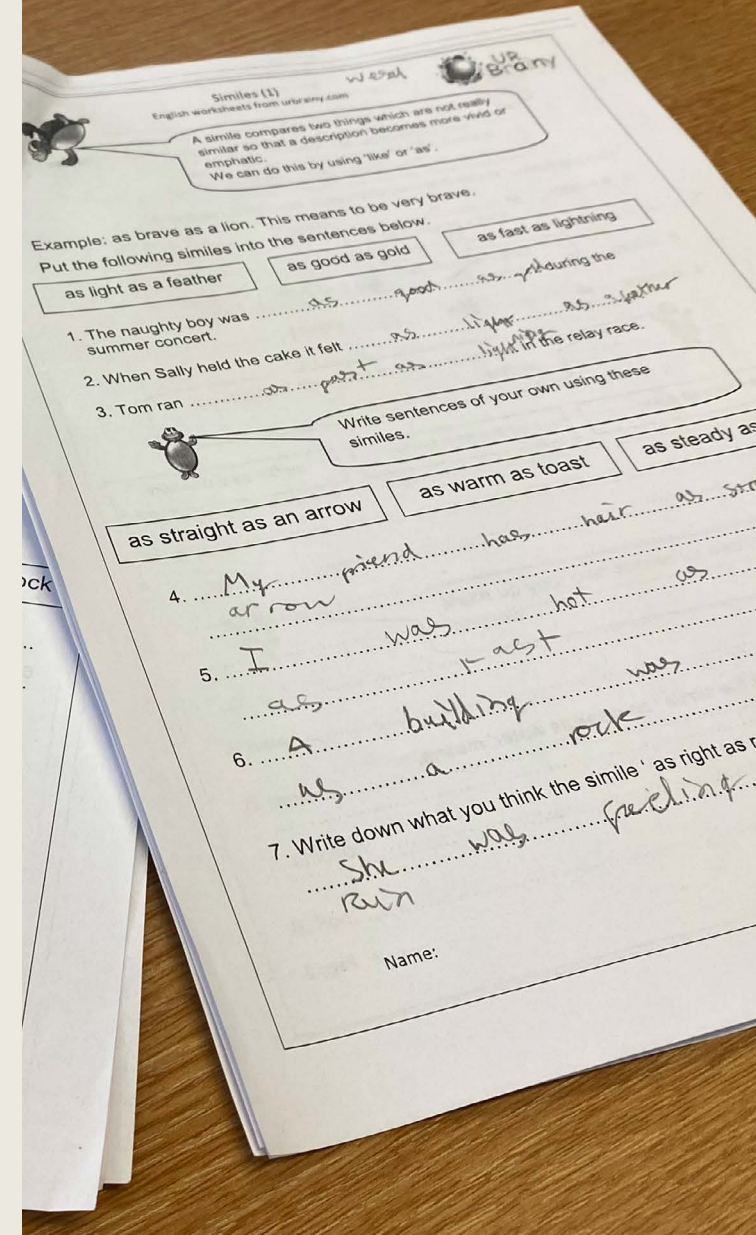 wesal
UR
Brainy
Similes (1)
English worksheets from urbrainy.com
A simile compares two things which are not really
similar so that a description becomes more vivid or
emphatic.
We can do this by using 'like' or 'as'.
Example: as brave as a lion. This means to be very brave.
Put the following similes into the sentences below.
as light as a feather
as good as gold
as fast as lightning
1. The naughty boy was as good as gold during the
summer concert.
2. When Sally held the cake it felt as light as a feather
3. Tom ran as fast as in the relay race.
Write sentences of your own using these
similes.
as straight as an arrow
as warm as toast
as steady as
ock
4. My friend has hair as
arrow
5. I was hot as
as
6. A building was
as a rock
7. Write down what you think the simile ' as right as
She was feeling
Name: